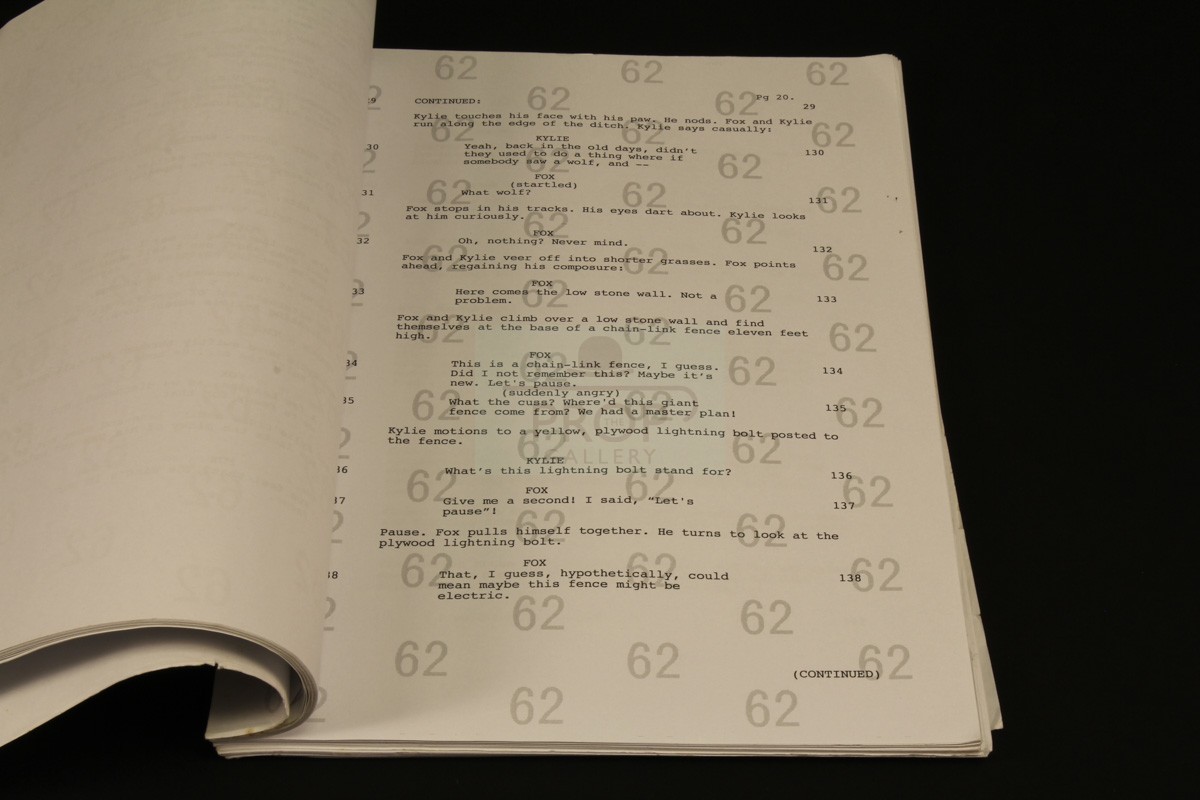 Pg 20.
29 CONTINUED: 29
Kylie touches his face with his paw. He nods. Fox and Kylie
run along the edge of the ditch. Kylie says casually:
KYLIE
30 Yeah, back in the old days, didn't 130
they used to do a thing where if
somebody saw a wolf, and --
FOX
(startled)
31 What wolf? 131
Fox stops in his tracks. His eyes dart about. Kylie looks
at him curiously.
FOX
32 Oh, nothing? Never mind. 132
Fox and Kylie veer off into shorter grasses. Fox points
ahead, regaining his composure:
FOX
33 Here comes the low stone wall. Not a 133
problem.
Fox and Kylie climb over a low stone wall and find
themselves at the base of a chain-link fence eleven feet
high.
FOX
34 This is a chain-link fence, I guess. 134
Did I not remember this? Maybe it's
new. Let's pause.
(suddenly angry)
35 What the cuss? Where'd this giant 135
fence come from? We had a master plan!
Kylie motions to a yellow, plywood lightning bolt posted to
the fence.
KYLIE
36 What's this lightning bolt stand for? 136
FOX
37 Give me a second! I said, "Let's 137
pause"!
Pause. Fox pulls himself together. He turns to look at the
plywood lightning bolt.
FOX
38 That, I guess, hypothetically, could 138
mean maybe this fence might be
electric.
(CONTINUED)
62
THE
PROP
GALLERY